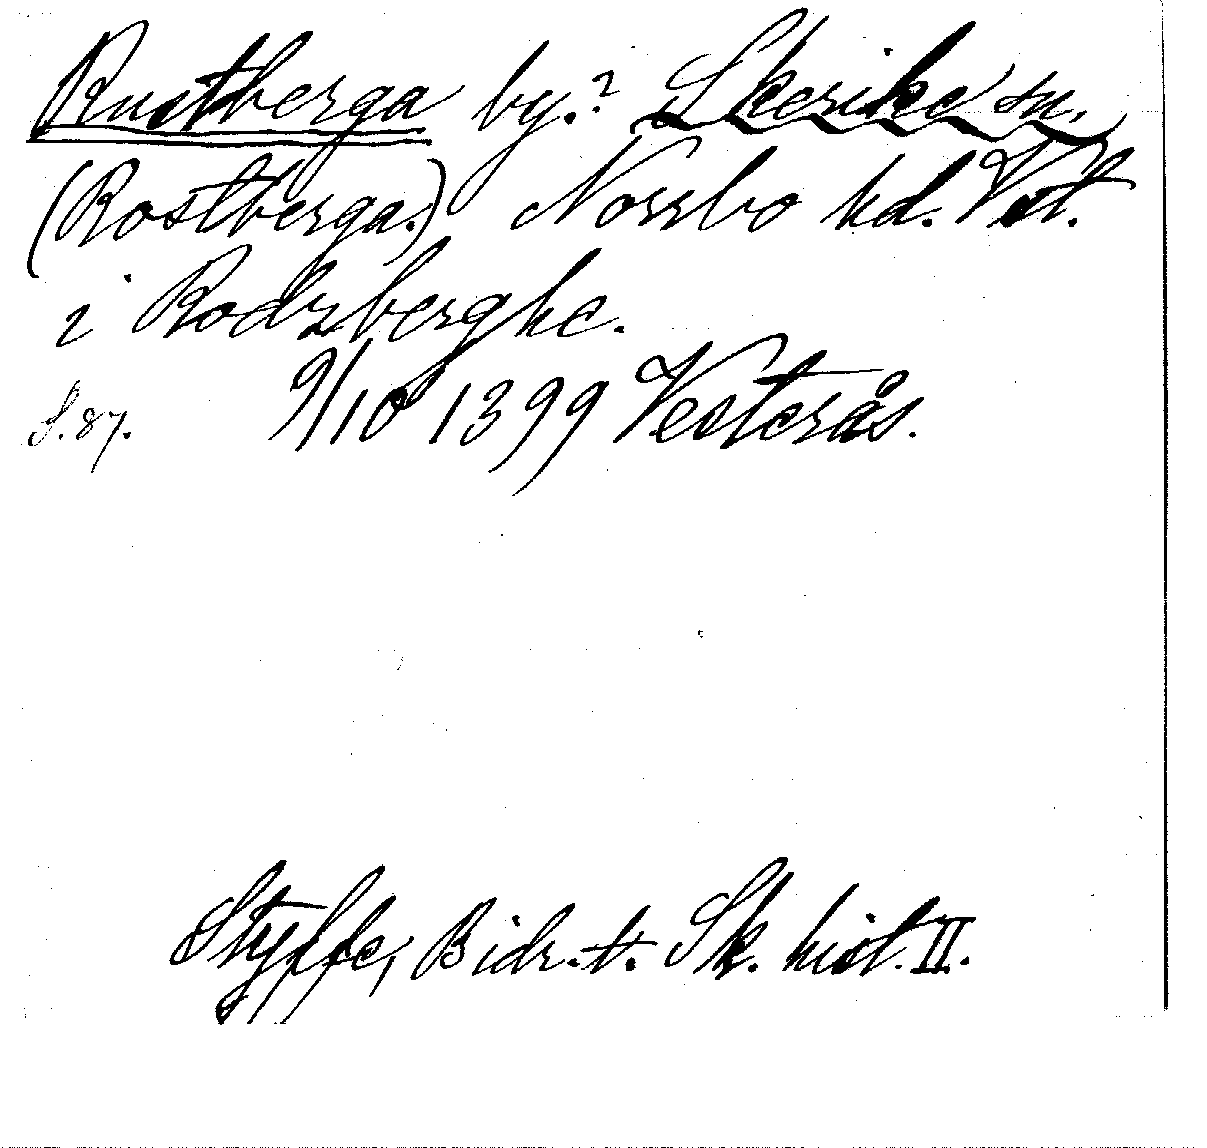 Rustberga by.? Skerike sn.
(Rostberga.) Norrbo hd. Vstm.
i Rodzberghe.
S. 87. 9/10 1399 Vesterås.
Styffe, Bidr. t. Sk. hist. II.